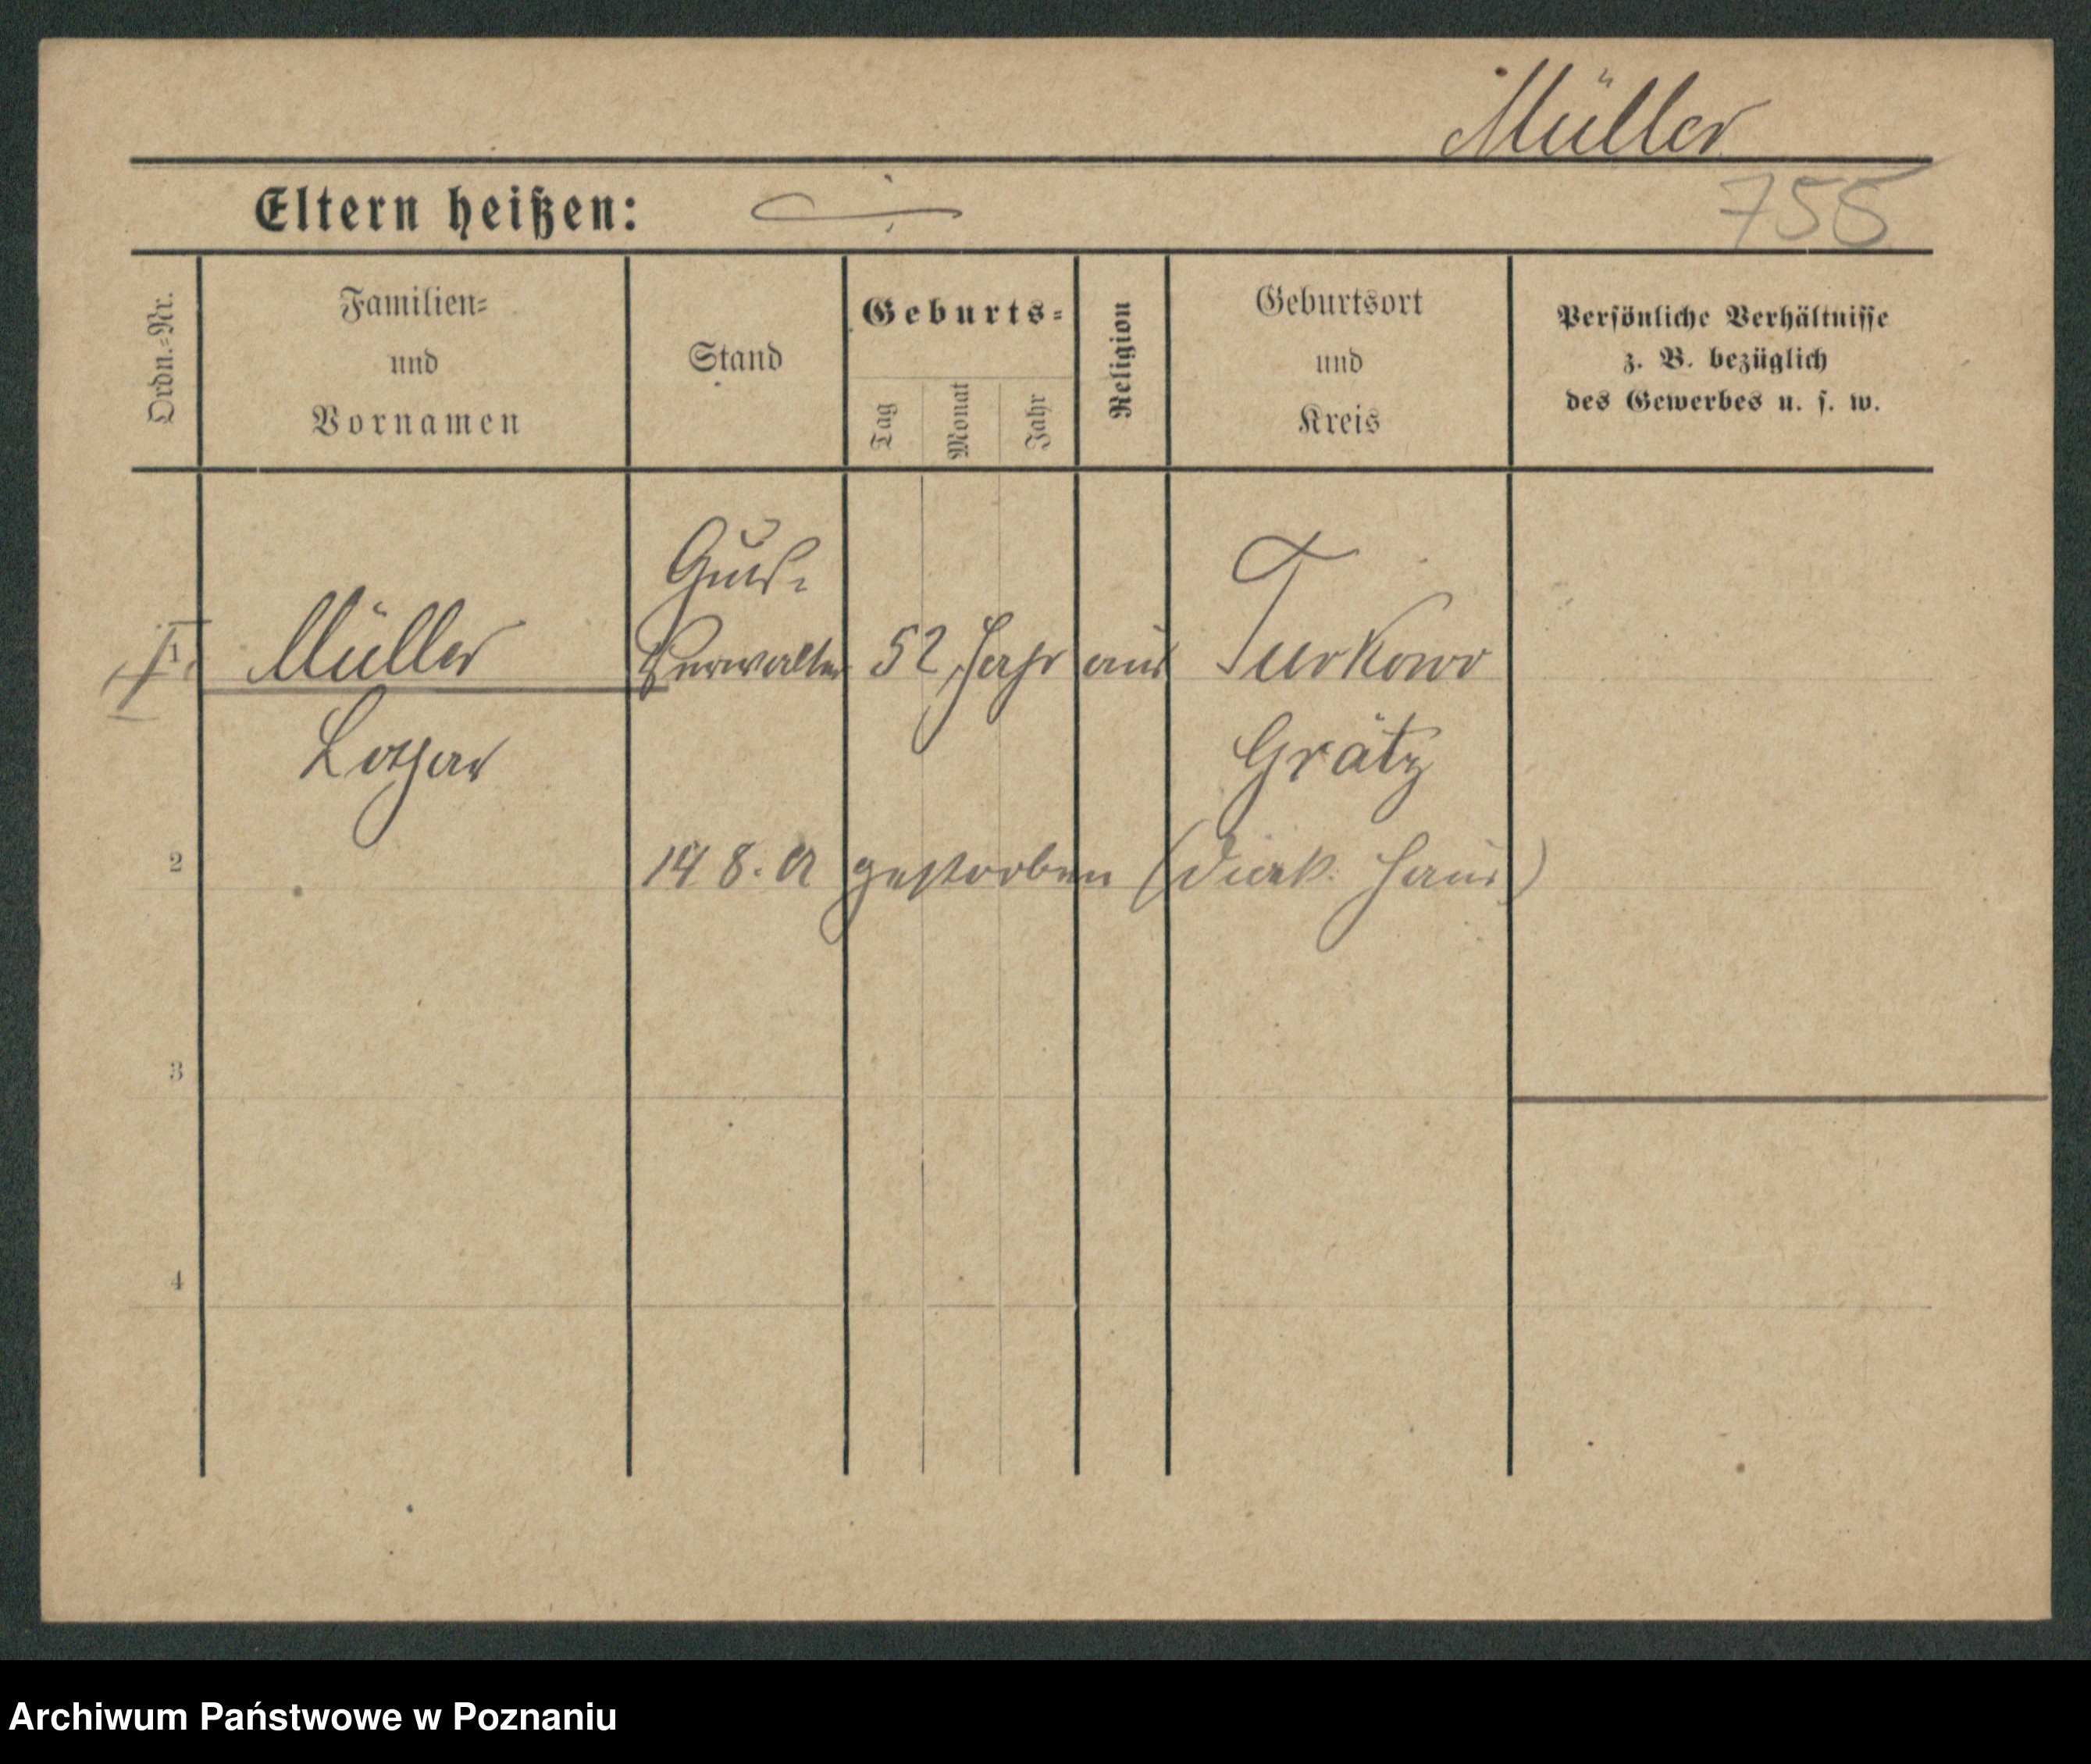 Müller
Eltern heißen:
755
Ordn.-Nr.
Familien=
und
Vornamen
Stand
Geburts=
Tag
Monat
Jahr
Religion
Geburtsort
und
Kreis
Persönliche Verhältnisse
z. B. bezüglich
des Gewerbes u. s. w.
1
Müller
Lothar
Guts-
Verwalter 52 Jahr aus Turkowo
Grätz
2
gestorben (Diak. Haus)
3
4
Archiwum Państwowe w Poznaniu